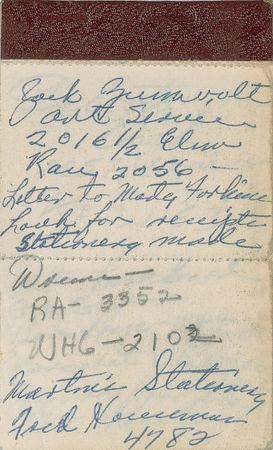 Jack Zumwolt
art Service
2016 1/2 Elm
Ray 2056 -
Letter to Maty for line
Look for receipts
Stationery made
RA- 3352
WH6-2102
Martin's Stationery
Fred
4782